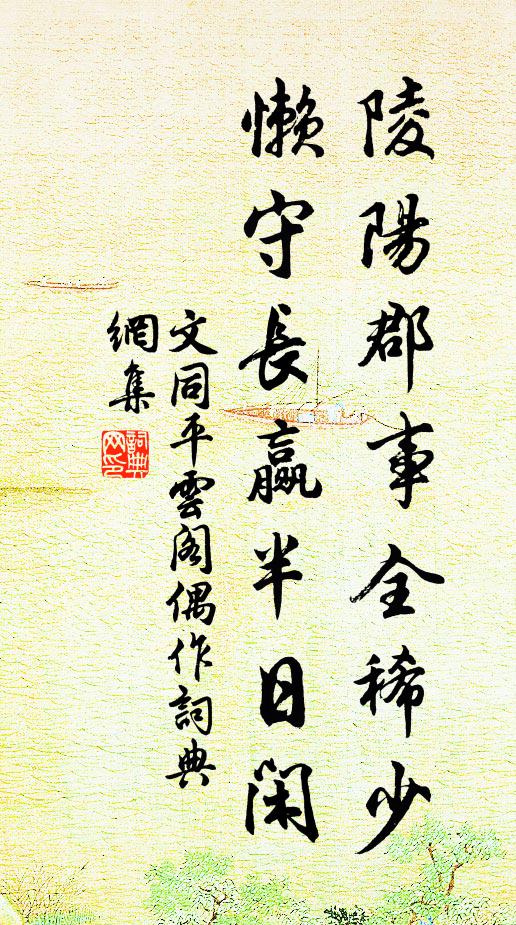 陵陽郡事全稀少
懶守長贏半日閑
文同平雲閣偶作詞典
網集
詞典网印